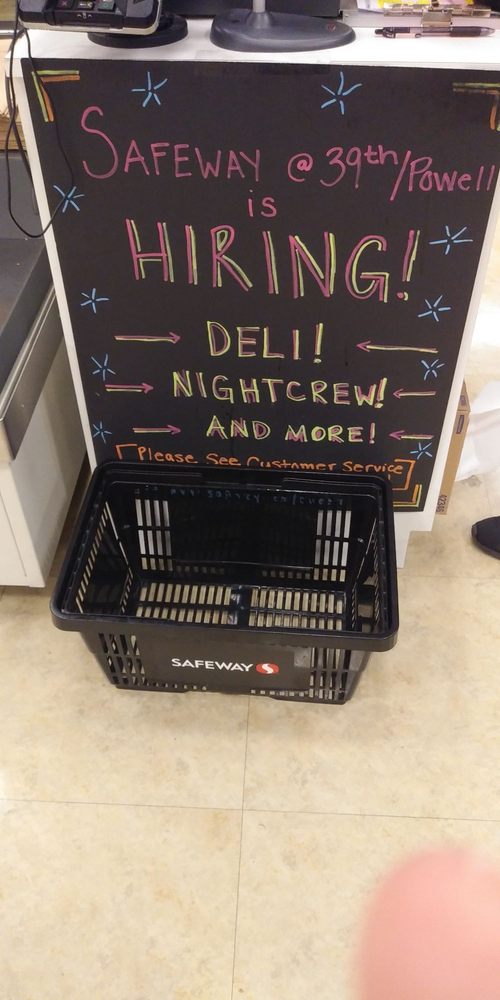 SAFEWAY @ 39th/Powell
is
HIRING!
DELI!
NIGHTCREW!
AND MORE!
Please See Customer Service
SAFEWAY